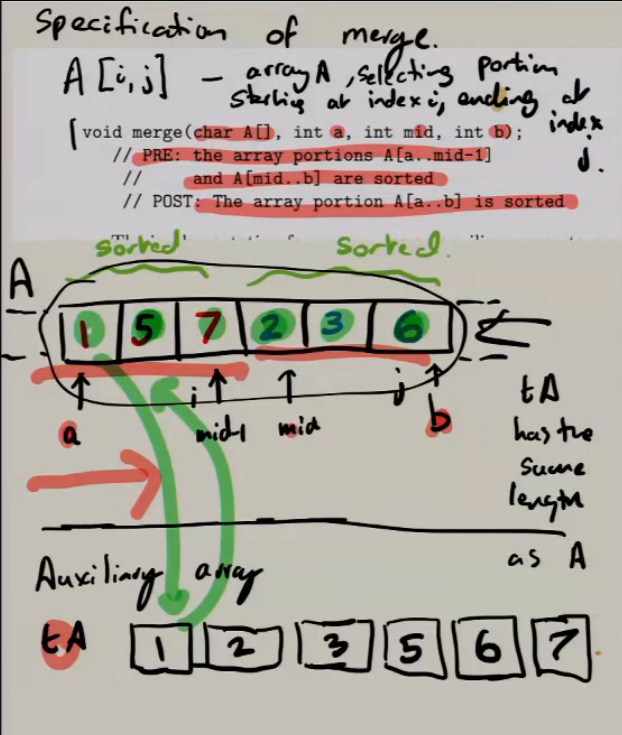 Specification of merge.
A[i,j] – array A, selecting portion
starting at index i, ending at
index
j.
void merge(char A[], int a, int mid, int b);
// PRE: the array portions A[a..mid-1]
// and A[mid..b] are sorted
// POST: The array portion A[a..b] is sorted
sorted sorted.
A
1 5 7 2 3 6
i j
a mid-1 mid b
tA
has the
same
length
as A
Auxiliary array
tA 1 2 3 5 6 7